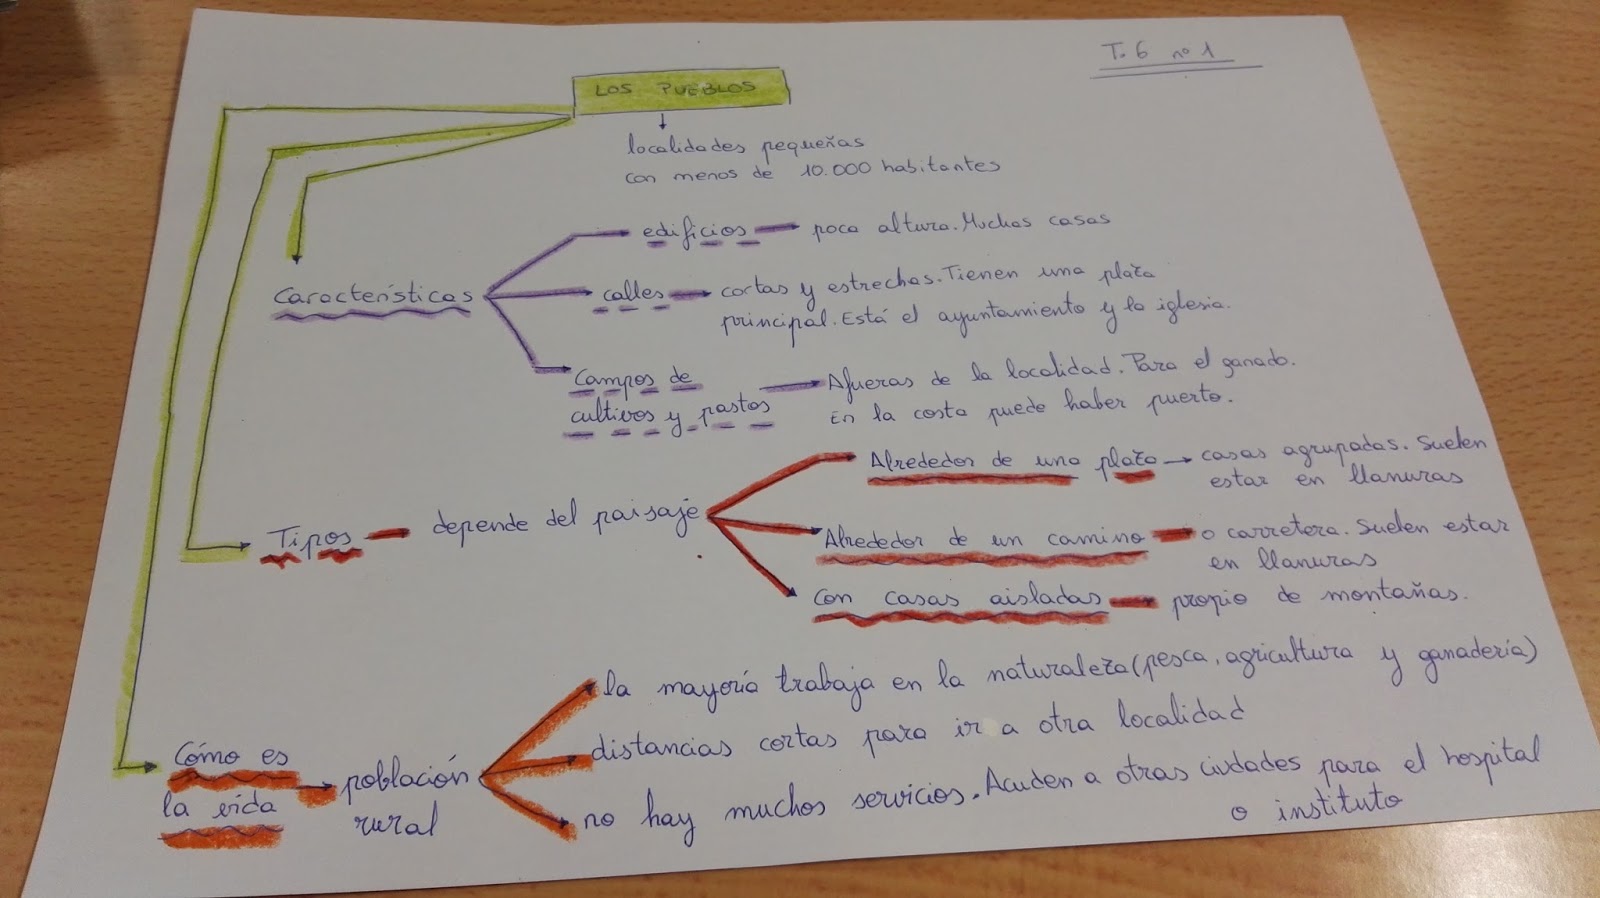 T.6 nº 1
LOS PUEBLOS
localidades pequeñas
con menos de 10.000 habitantes
Características
edificios
poca altura. Muchas casas
calles
cortas y estrechas. Tienen una plaza
principal. Está el ayuntamiento y la iglesia.
Campos de
cultivos y pastos
Afueras de la localidad. Para el ganado.
En la costa puede haber puerto.
Tipos
depende del paisaje
Alrededor de una plaza
casas agrupadas. Suelen
estar en llanuras
Alrededor de un camino
o carretera. Suelen estar
en llanuras
Con casas aisladas
propio de montañas.
Cómo es
la vida
población
rural
la mayoría trabaja en la naturaleza (pesca, agricultura y ganadería)
distancias cortas para ir a otra localidad
no hay muchos servicios. Acuden a otras ciudades para el hospital
o instituto